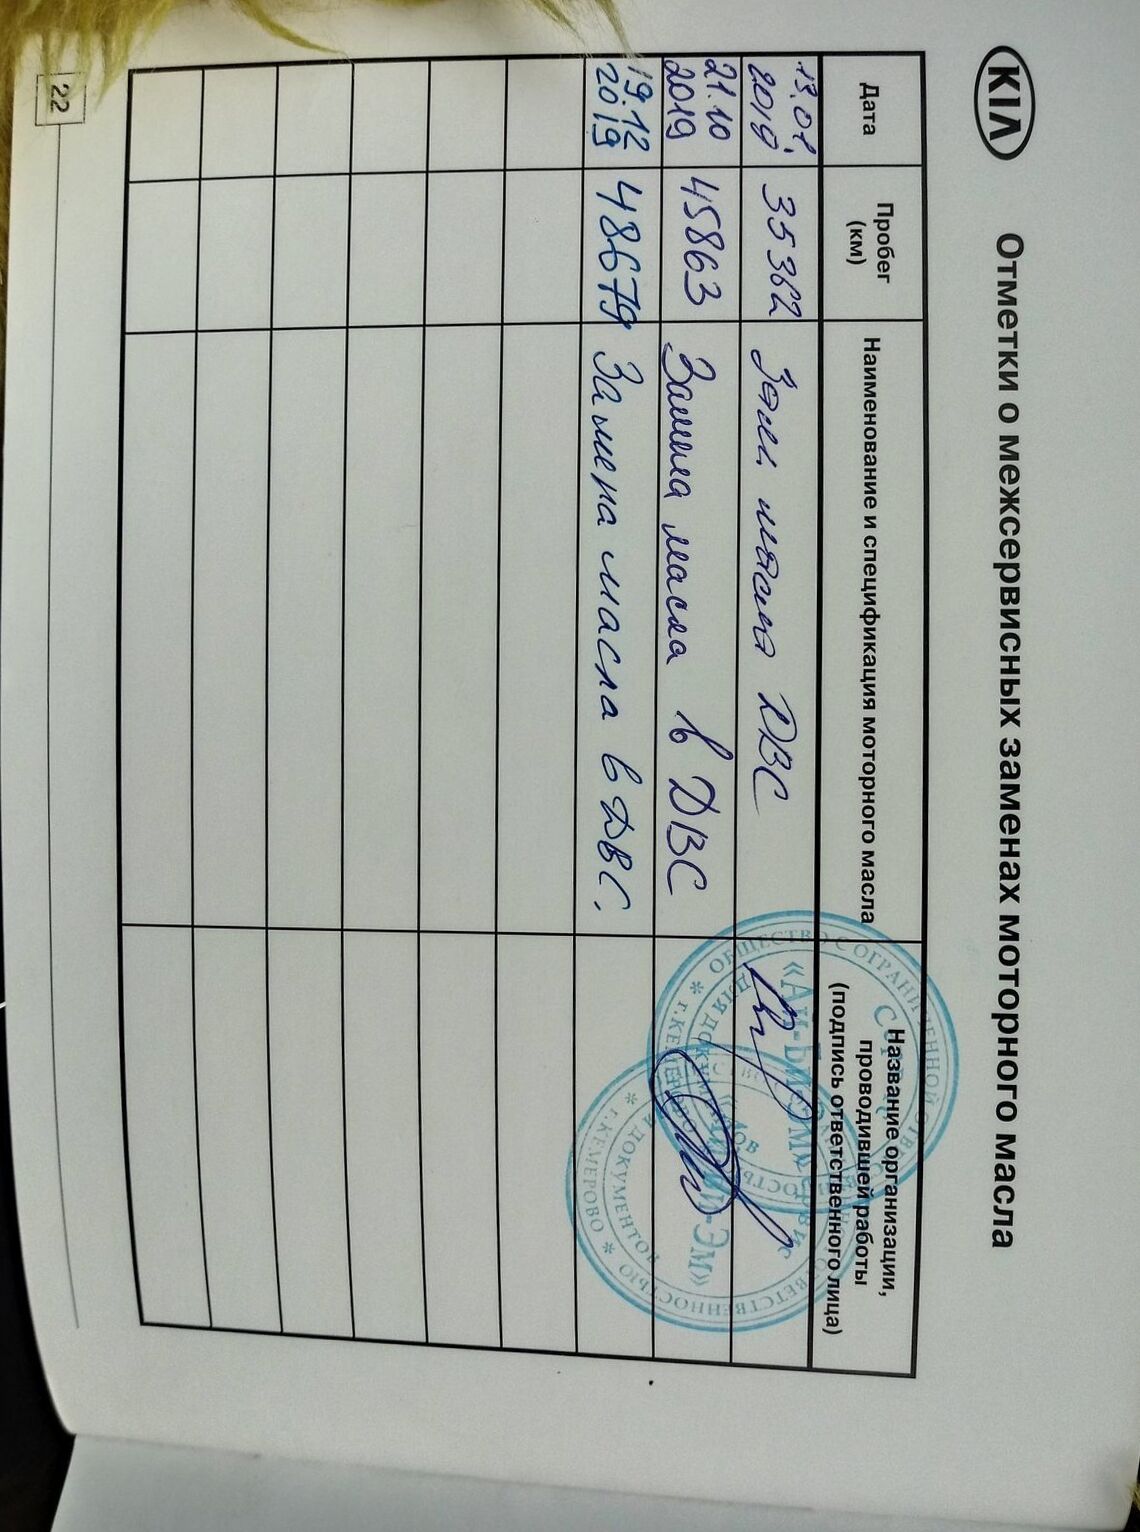 KIA
Отметки о межсервисных заменах моторного масла
Дата
Пробег
(км)
Наименование и спецификация моторного масла
Название организации,
проводившей работы
(подпись ответственного лица)
13.01.
2019
35362
Зам. масла ДВС
21.10
2019
45863
Замена масла в ДВС
19.12
2019
48679
Замена масла в ДВС.
ОБЩЕСТВО С ОГРАНИЧЕННОЙ
«АЙ-БИ-ЭМ»
ДЛЯ ДОКУМЕНТОВ
г.КЕМЕРОВО
ОТВЕТСТВЕННОСТЬЮ
ДОКУМЕНТОВ
г.КЕМЕРОВО
22